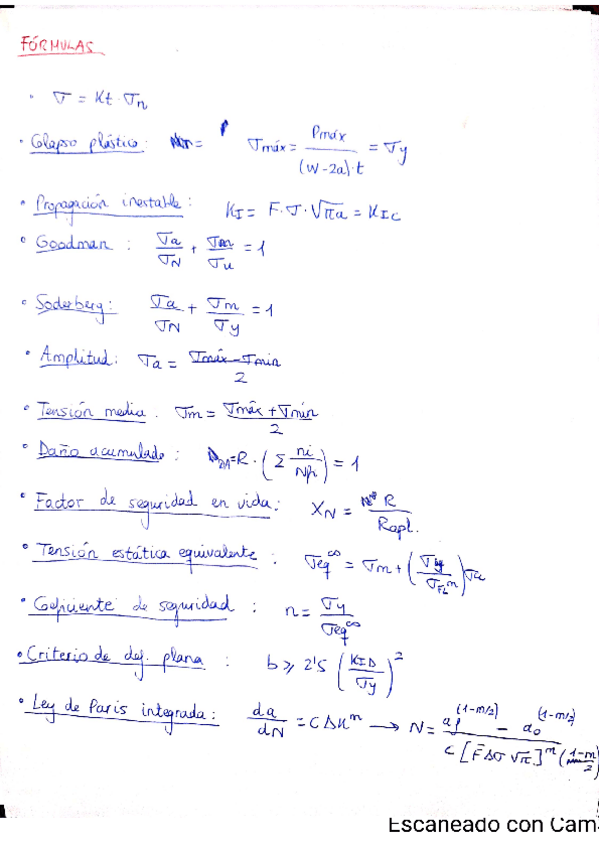 FÓRMULAS
· σ = Kt · σn
· Colapso plástico: σmáx = Pmáx / (W-2a)·t = σy
· Propagación inestable: KI = F·σ·√πa = KIC
· Goodman: σa/σN + σm/σu = 1
· Soderberg: σa/σN + σm/σy = 1
· Amplitud: σa = σmáx - σmin / 2
· Tensión media. σm = σmáx + σmín / 2
· Daño acumulado: = R · (Σ ni/Nfi) = 1
· Factor de seguridad en vida: XN = R / Rapl.
· Tensión estática equivalente: σeq^∞ = σm + (σy/σFL^m) σa
· Coeficiente de seguridad: n = σy / σeq^∞
· Criterio de def. plana: b ⩾ 2'5 (KID/σy)^2
· Ley de Paris integrada: da/dN = C ΔK^m → N = af^(1-m/2) - a0^(1-m/2) / C [F̄ Δσ √π]^m (1-m/2)
Escaneado con Cam